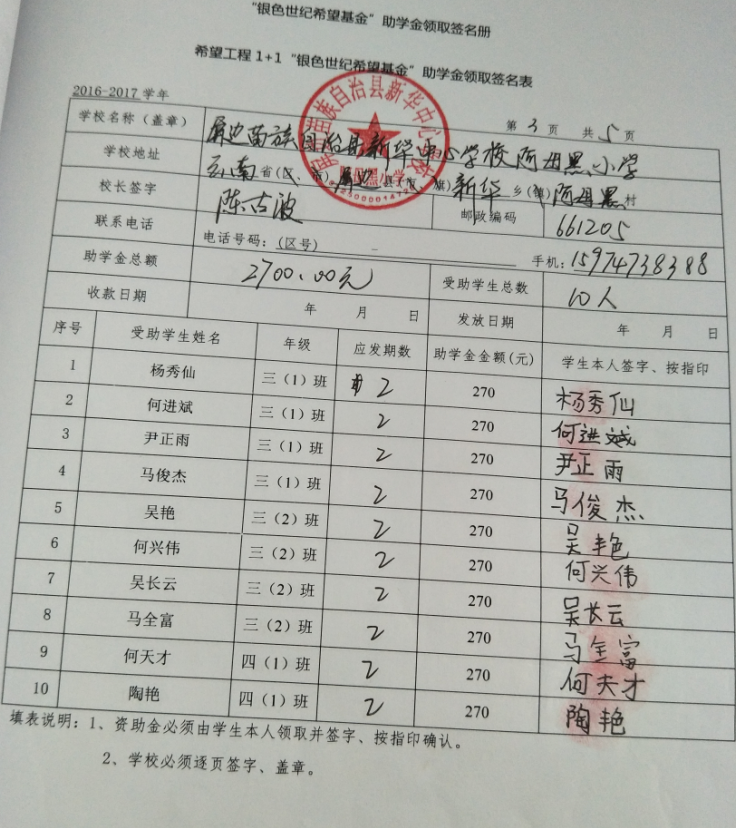 “银色世纪希望基金”助学金领取签名册
希望工程 1+1“银色世纪希望基金”助学金领取签名表
2016-2017 学年 第 3 页 共 5 页
学校名称（盖章） 屏边苗族自治县新华中心学校阿母黑小学
学校地址 云南 省(区、市) 屏边 县(市、旗) 新华 乡(镇) 阿母黑 村
校长签字 陈古波 邮政编码 661205
联系电话 电话号码：(区号) 手机：15974738388
助学金总额 2700.00元 受助学生总数 10人
收款日期 年 月 日 发放日期 年 月 日
序号 受助学生姓名 年级 应发期数 助学金金额(元) 学生本人签字、按指印
1 杨秀仙 三（1）班 2 270 杨秀仙
2 何进斌 三（1）班 2 270 何进斌
3 尹正雨 三（1）班 2 270 尹正雨
4 马俊杰 三（1）班 2 270 马俊杰
5 吴艳 三（2）班 2 270 吴艳
6 何兴伟 三（2）班 2 270 何兴伟
7 吴长云 三（2）班 2 270 吴长云
8 马全富 三（2）班 2 270 马全富
9 何天才 四（1）班 2 270 何天才
10 陶艳 四（1）班 2 270 陶艳
填表说明：1、资助金必须由学生本人领取并签字、按指印确认。
2、学校必须逐页签字、盖章。